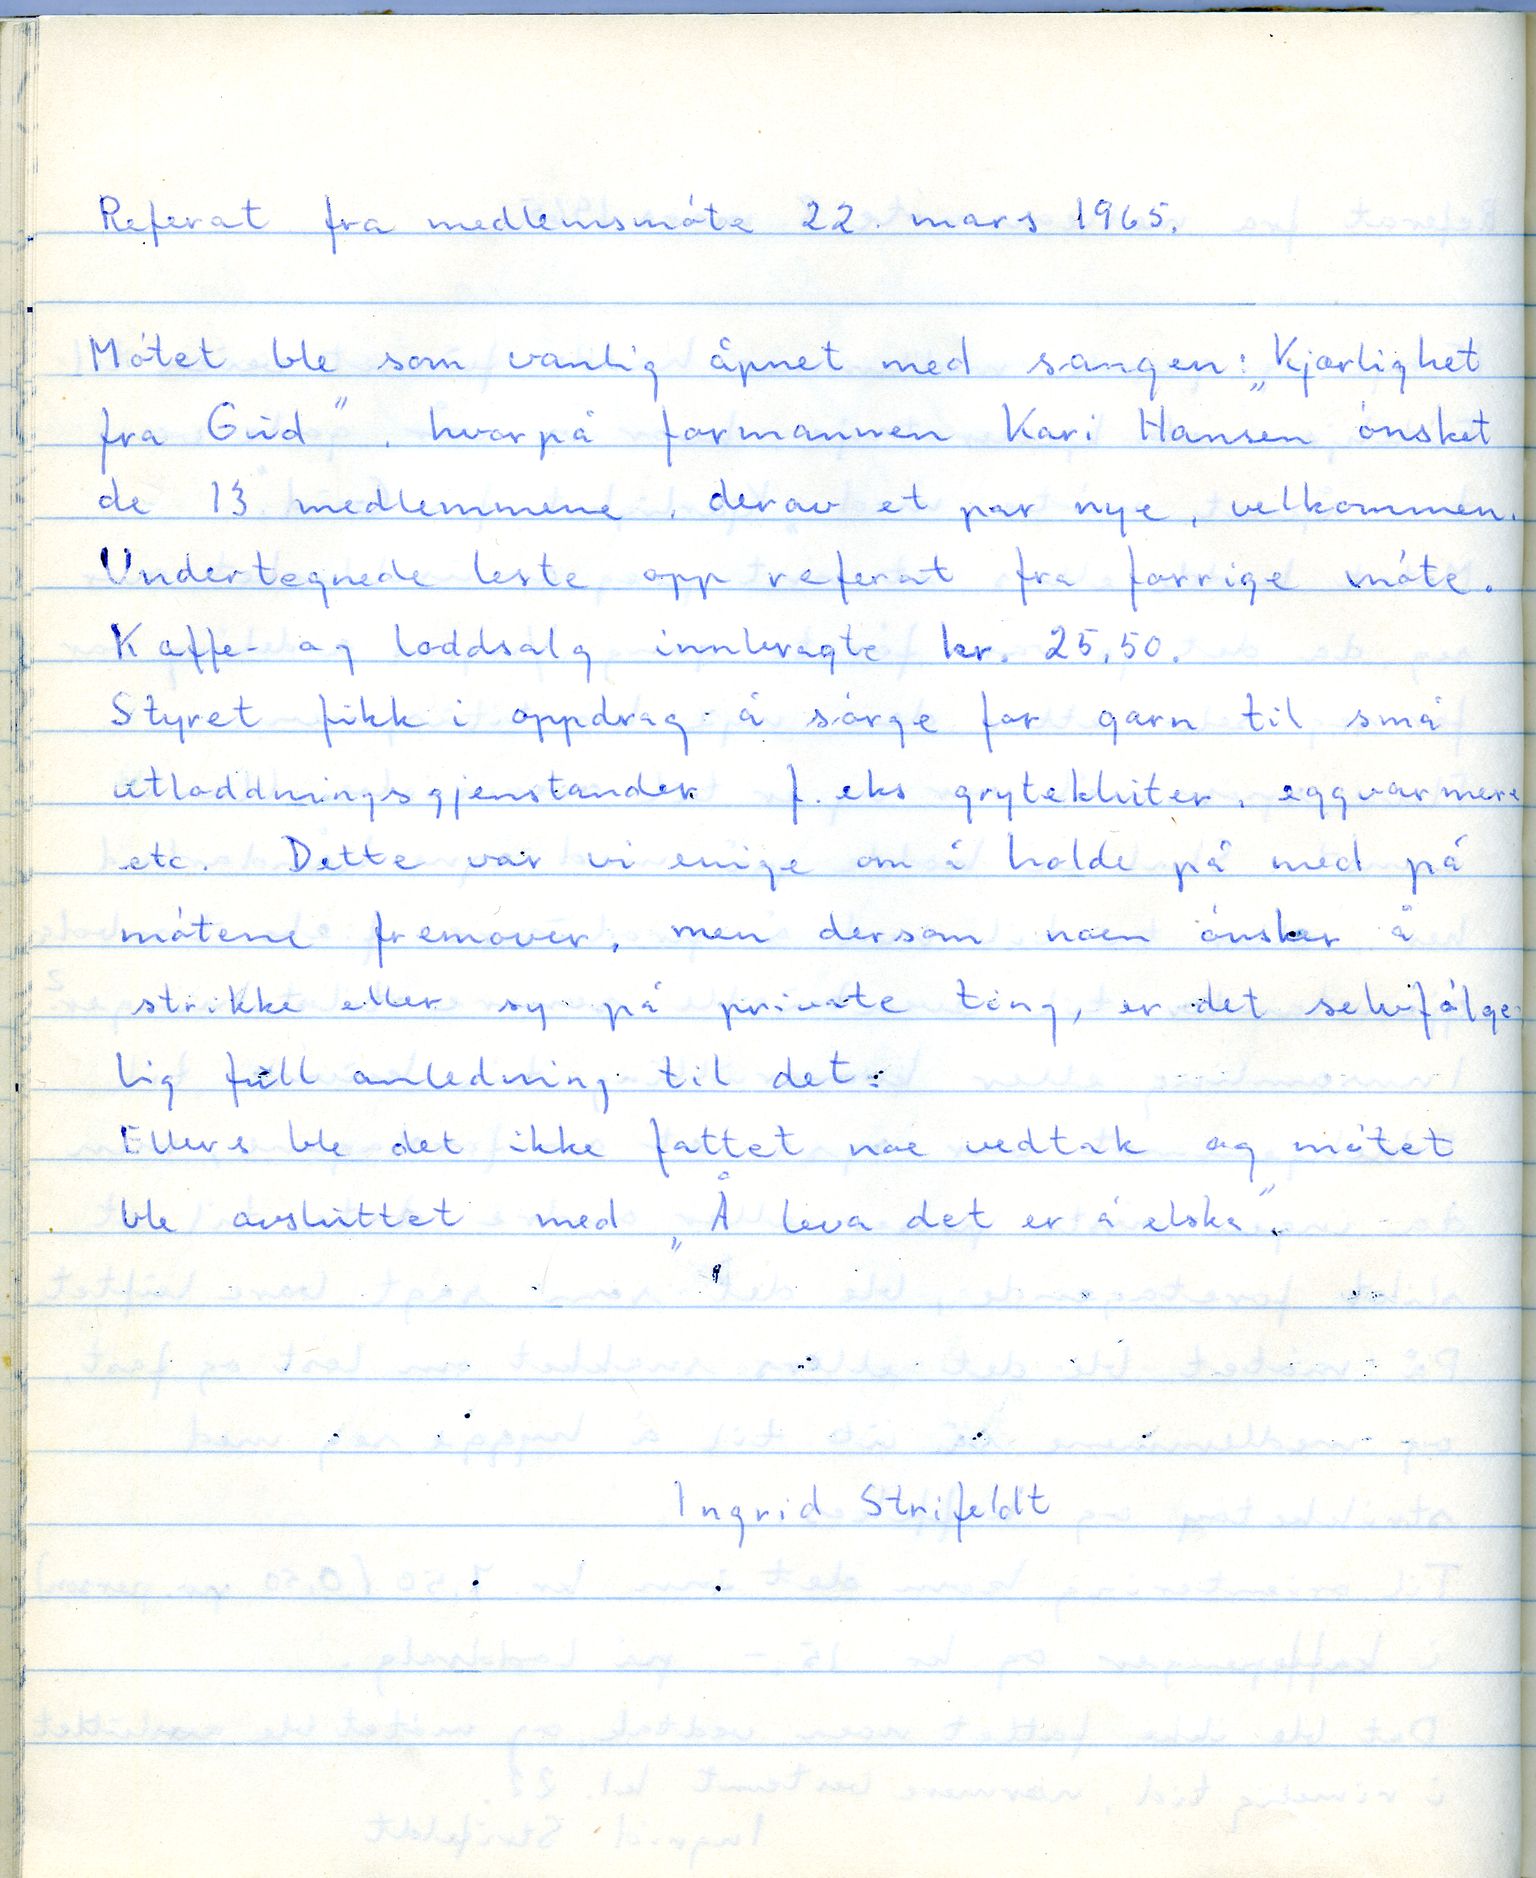 Referat fra medlemsmóte 22. mars 1965.
Mótet ble som vanlig åpnet med sangen: „Kjærlighet
fra Gud”, hvorpå formannen Kari Hansen ónsket
de 13 medlemmene, derav et par nye, velkommen.
Undertegnede leste opp referat fra forrige móte.
Kaffe- og loddsalg innbragte kr. 25,50.
Styret fikk i oppdrag å sórge for garn til små
utloddningsgjenstander f. eks grytekluter, eggvarmere
etc. Dette var vi enige om å holde på med på
mótene fremover, men dersom noen ónsker å
strikke eller sy på private ting, er det selvfólge-
lig full anledning til det.
Ellers ble det ikke fattet noe vedtak og mótet
ble avsluttet med „Å leva det er å elska”.
Ingrid Strifeldt